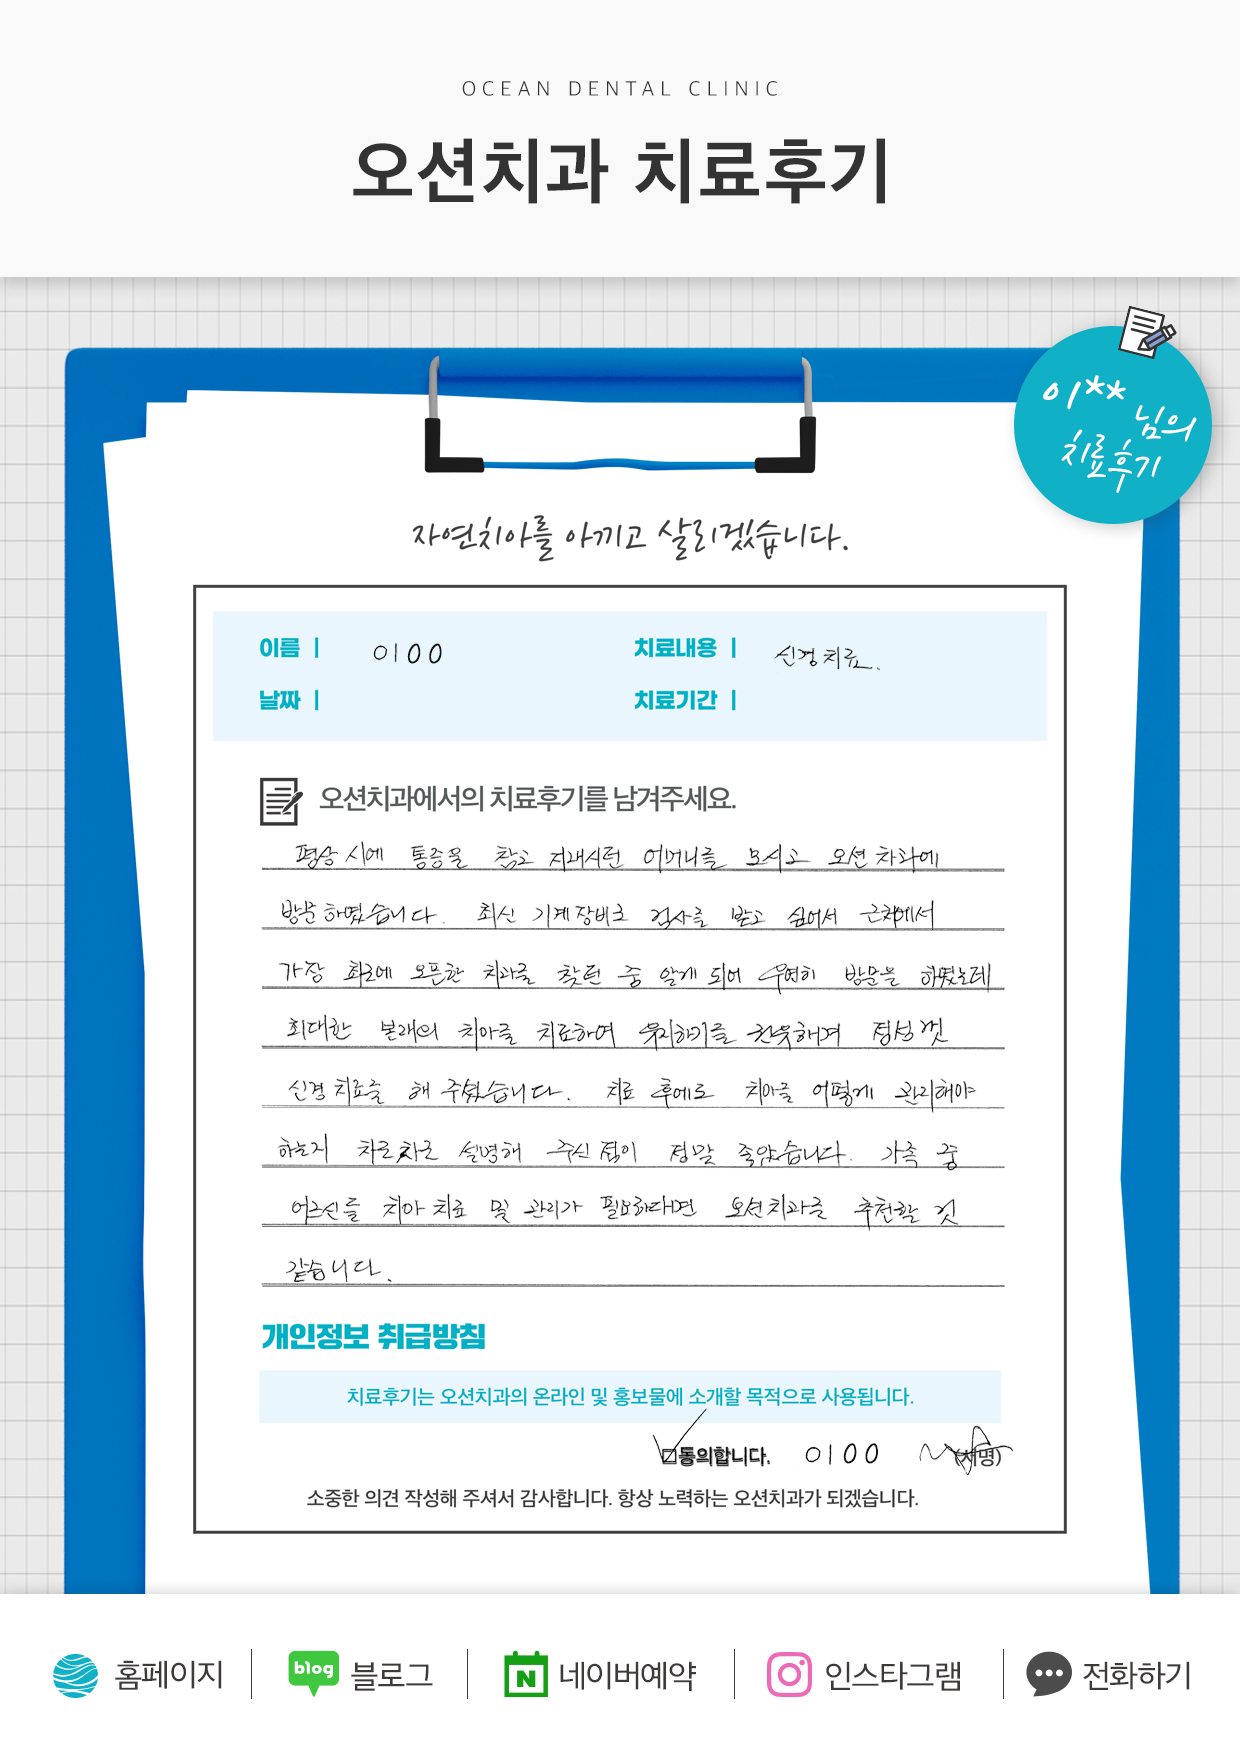 OCEAN DENTAL CLINIC
오션치과 치료후기
이** 님의
치료후기
자연치아를 아끼고 살리겠습니다.
이름 | 이OO
치료내용 | 신경치료.
날짜 |
치료기간 |
오션치과에서의 치료후기를 남겨주세요.
평상시에 통증을 참고 지내시던 어머니를 모시고 오션치과에
방문하였습니다. 최신 기계장비로 검사를 받고 싶어서 근처에서
가장 최근에 오픈한 치과를 찾던 중 알게 되어 우연히 방문을 하였는데
최대한 본래의 치아를 치료하여 유지하기를 권유해주며 정성껏
신경치료를 해 주셨습니다. 치료 후에도 치아를 어떻게 관리해야
하는지 차근차근 설명해 주신 점이 정말 좋았습니다. 가족 중
어르신들 치아 치료 및 관리가 필요하다면 오션치과를 추천할 것
같습니다.
개인정보 취급방침
치료후기는 오션치과의 온라인 및 홍보물에 소개할 목적으로 사용됩니다.
동의합니다. 이OO (서명)
소중한 의견 작성해 주셔서 감사합니다. 항상 노력하는 오션치과가 되겠습니다.
홈페이지
blog 블로그
N 네이버예약
인스타그램
전화하기